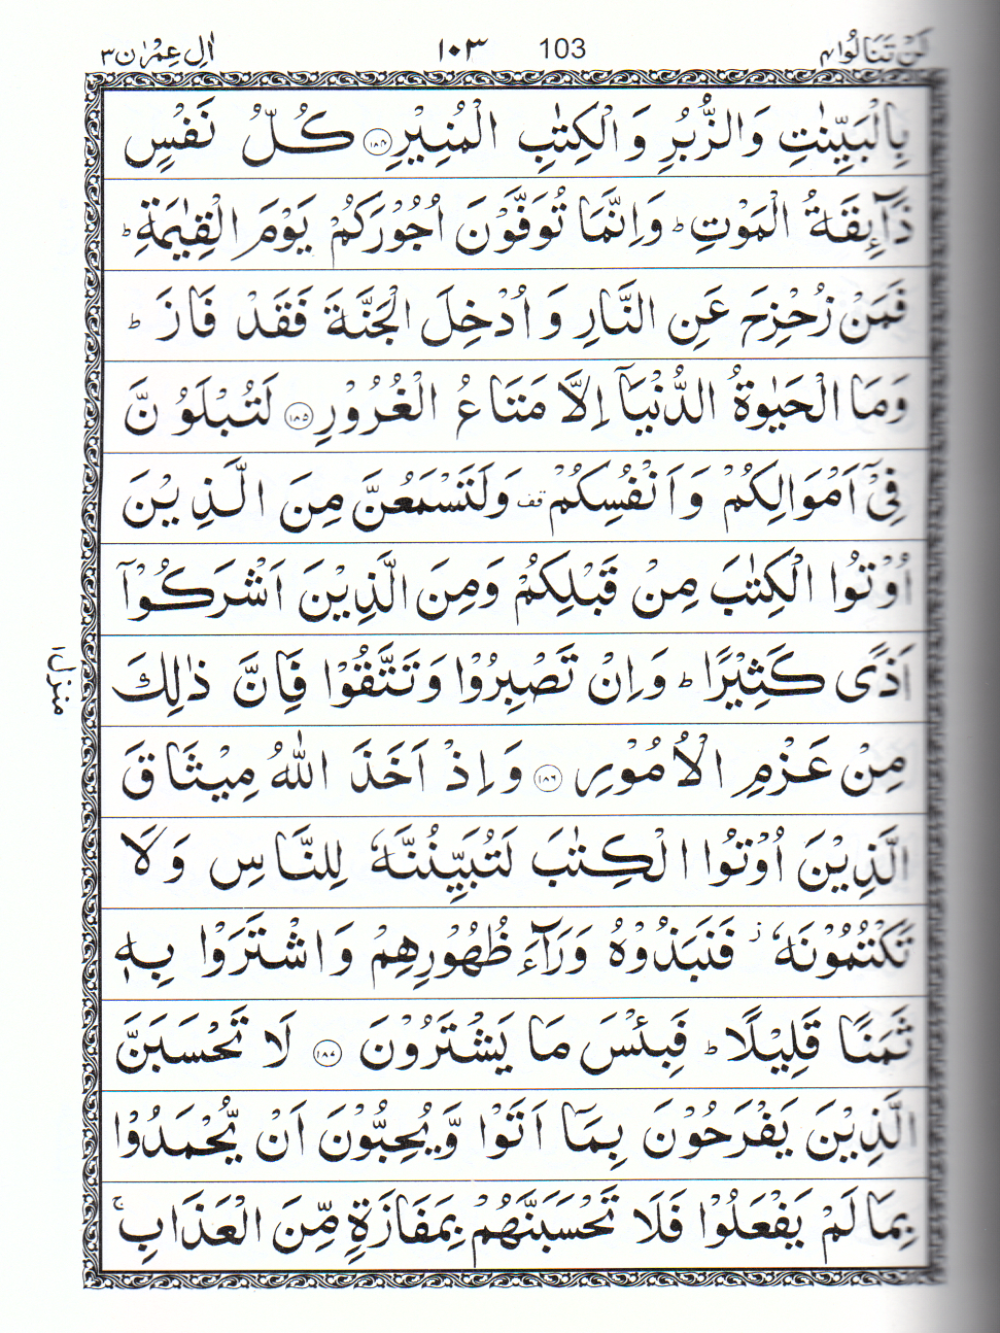 لَنْ تَنَالُوا ٤ ١٠٣ 103 اٰلِ عِمْرٰن ٣
بِالْبَيِّنٰتِ وَالزُّبُرِ وَالْكِتٰبِ الْمُنِيْرِ ۝١٨٤ كُلُّ نَفْسٍ
ذَآئِقَةُ الْمَوْتِ ؕ وَاِنَّمَا تُوَفَّوْنَ اُجُوْرَكُمْ يَوْمَ الْقِيٰمَةِ ؕ
فَمَنْ زُحْزِحَ عَنِ النَّارِ وَاُدْخِلَ الْجَنَّةَ فَقَدْ فَازَ ؕ
وَمَا الْحَيٰوةُ الدُّنْيَآ اِلَّا مَتَاعُ الْغُرُوْرِ ۝١٨٥ لَتُبْلَوُنَّ
فِيْٓ اَمْوَالِكُمْ وَاَنْفُسِكُمْ قف وَلَتَسْمَعُنَّ مِنَ الَّذِيْنَ
اُوْتُوا الْكِتٰبَ مِنْ قَبْلِكُمْ وَمِنَ الَّذِيْنَ اَشْرَكُوْٓا
اَذًى كَثِيْرًا ؕ وَاِنْ تَصْبِرُوْا وَتَتَّقُوْا فَاِنَّ ذٰلِكَ
مِنْ عَزْمِ الْاُمُوْرِ ۝١٨٦ وَاِذْ اَخَذَ اللّٰهُ مِيْثَاقَ
الَّذِيْنَ اُوْتُوا الْكِتٰبَ لَتُبَيِّنُنَّهٗ لِلنَّاسِ وَلَا
تَكْتُمُوْنَهٗ ز فَنَبَذُوْهُ وَرَآءَ ظُهُوْرِهِمْ وَاشْتَرَوْا بِهٖ
ثَمَنًا قَلِيْلًا ؕ فَبِئْسَ مَا يَشْتَرُوْنَ ۝١٨٧ لَا تَحْسَبَنَّ
الَّذِيْنَ يَفْرَحُوْنَ بِمَآ اَتَوْا وَّيُحِبُّوْنَ اَنْ يُّحْمَدُوْا
بِمَا لَمْ يَفْعَلُوْا فَلَا تَحْسَبَنَّهُمْ بِمَفَازَةٍ مِّنَ الْعَذَابِ ۚ
منزل ١